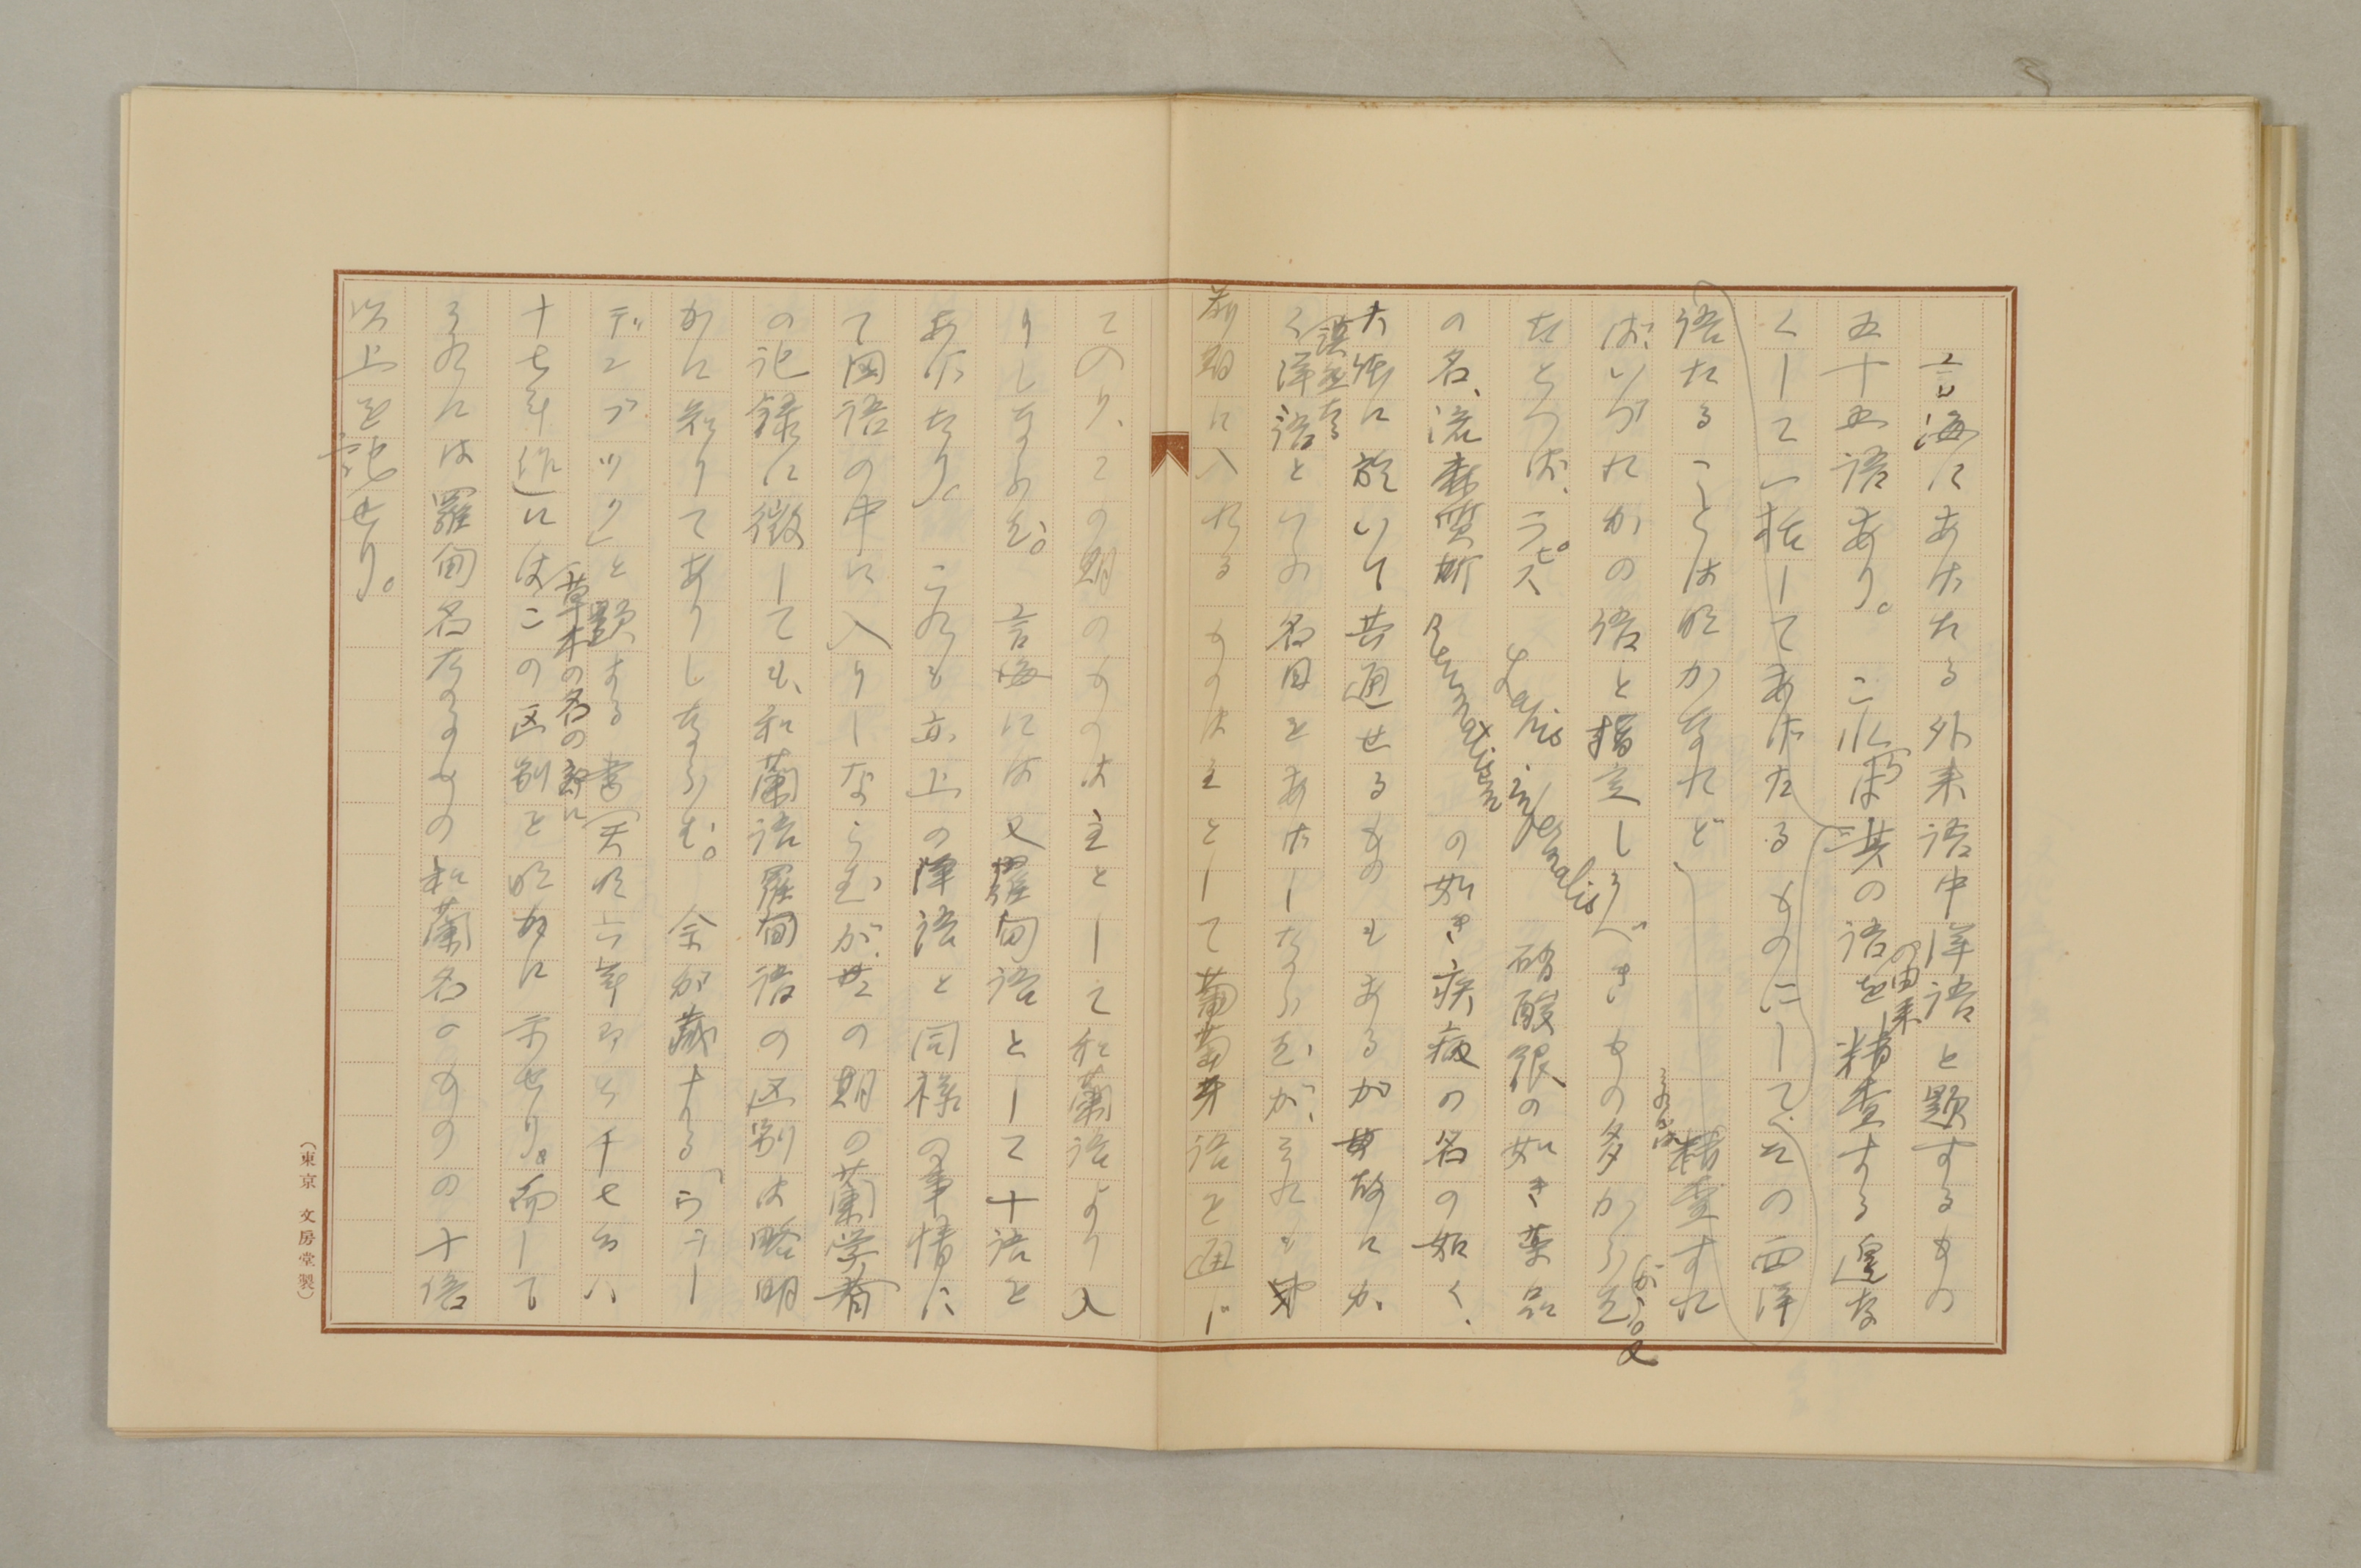 言海にあげたる外来語中洋語と題するもの
五十五語あり。これらは其の語の由来を精査する遑な
くして一括してあげたるものにしてその西洋
語たることは明かなれど精査すれ
ばいづれかの語と指定しうべきもの多からむ
たとへば、ラピス Lapis infernalis 硝酸銀の如き薬品
の名、流麻質斯 Reumatismus の如き疾病の名の如く、
大体に於いて共通せるものもあるが故にか
く漠然たる洋語といふ名目をあげしならむが、それも
前期に入れるものは主として葡萄牙語を通じ
てのり、この期のものは主として和蘭語より入
りしならむ。 言海には又羅甸語として十語を
あげたり。 これも亦上の洋語と同様の事情に
て国語の中に入りしならむが、この期の蘭学者
の記録に徴しても、和蘭語羅甸語の区別は略明
かに知りてありしならむ。 余が蔵する「らうー
デンブック」と題する書(天明六年即ち千七百八
十七年作)には草木の名の部にこの区別を明かに示せり。而して
それには羅甸名なるものの和蘭名のものの十倍
以上を記せり。
(東京 文房堂製)